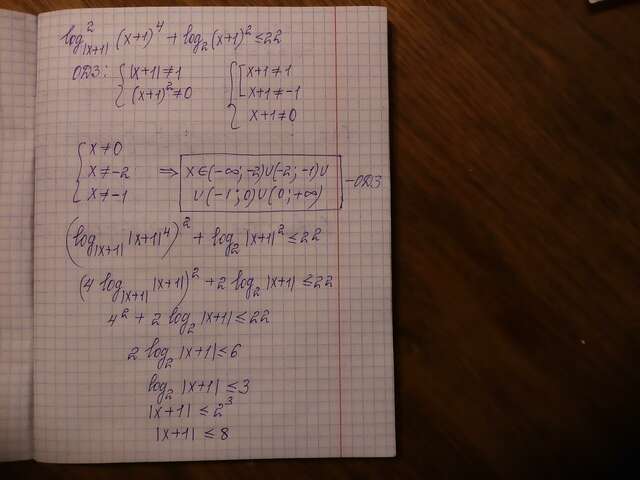 log²_|x+1| (x+1)⁴ + log₂(x+1)² ≤ 22
ОДЗ: { |x+1| ≠ 1 { [ x+1 ≠ 1
(x+1)² ≠ 0 x+1 ≠ -1
x+1 ≠ 0
{ x ≠ 0
x ≠ -2 ⇒ x ∈ (-∞; -2) ∪ (-2; -1) ∪ - ОДЗ
x ≠ -1 ∪ (-1; 0) ∪ (0; +∞)
(log_|x+1| |x+1|⁴)² + log₂ |x+1|² ≤ 22
(4 log_|x+1| |x+1|)² + 2 log₂ |x+1| ≤ 22
4² + 2 log₂ |x+1| ≤ 22
2 log₂ |x+1| ≤ 6
log₂ |x+1| ≤ 3
|x+1| ≤ 2³
|x+1| ≤ 8